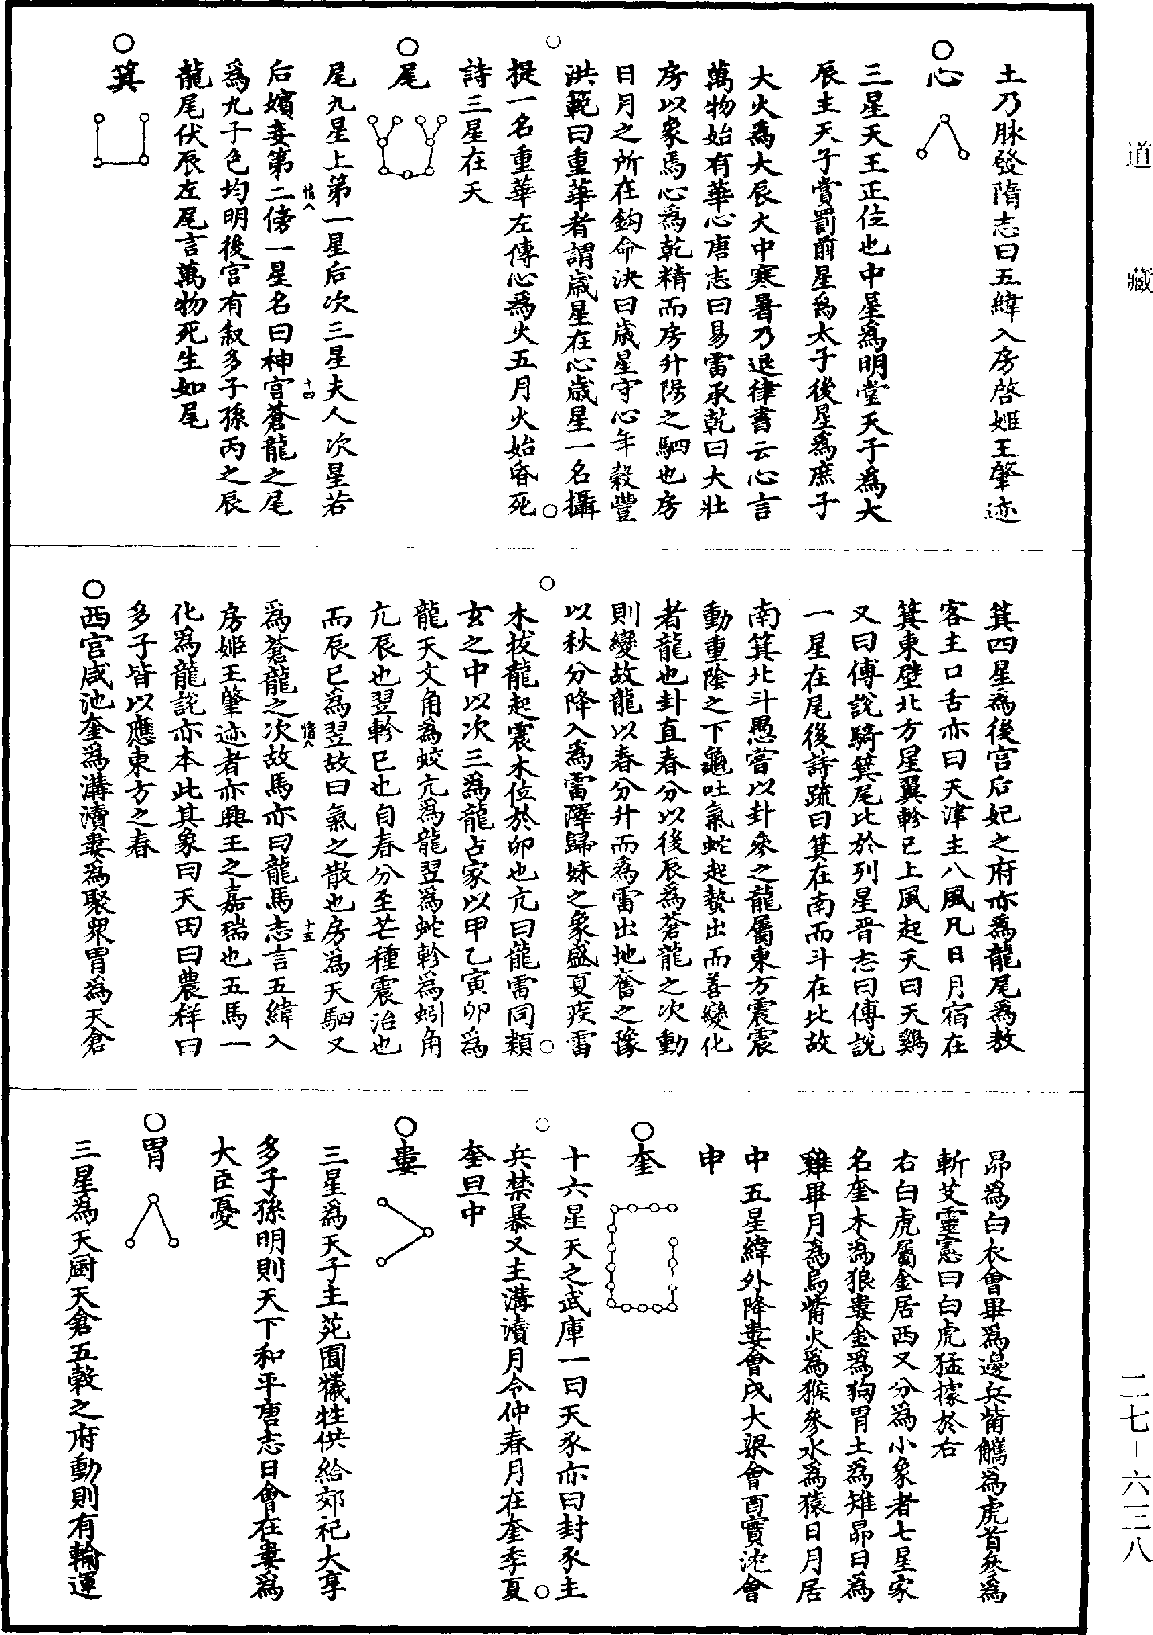 道藏
土乃脉發隋志曰五緯入房啓姬王肇迹
○心
三星天王正位也中星爲明堂天子爲大
辰主天子賞罰前星爲太子後星爲庶子
大火爲大辰大中寒暑乃退律書云心言
萬物始有華心唐志曰易雷承乾曰大壯
房以象焉心爲乾精而房升陽之駟也房
日月之所在鈎命決曰歲星守心年穀豐
洪範曰重華者謂歲星在心歲星一名攝
提一名重華左傳心爲火五月火始昏死
詩三星在天
○尾
尾九星上第一星后次三星夫人次星若
后嬪妾第二傍一星名曰神宮蒼龍之尾
爲九子色均明後宮有敘多子孫丙之辰
龍尾伏辰左尾言萬物死生如尾
○箕
箕四星爲後宮后妃之府亦爲龍尾爲敖
客主口舌亦曰天津主八風凡日月宿在
箕東壁北方星翼軫已上風起天曰天鷄
又曰傅說騎箕尾比於列星晋志曰傅說
一星在尾後詩疏曰箕在南而斗在北故
南箕北斗愚嘗以卦參之龍屬東方震震
動重陰之下龜吐氣蛇起蟄出而善變化
者龍也卦直春分以後辰爲蒼龍之次動
則變故龍以春分升而爲雷出地奮之豫
以秋分降入爲雷澤歸妹之象盛夏疾雷
木拔龍起震木位於卯也亢曰龍雷同類
玄之中以次三爲龍占家以甲乙寅卯爲
龍天文角爲蛟亢爲龍翌爲蛇軫爲蚓角
亢辰也翌軫巳也自春分至芒種震治也
而辰巳爲翌故曰氣之散也房爲天駟又
爲蒼龍之次故馬亦曰龍馬志言五緯入
房姬王肇迹者亦興王之嘉瑞也五馬一
化爲龍說亦本此其象曰天田曰農祥曰
多子皆以應東方之春
○西宮咸池奎爲溝瀆婁爲聚衆胃爲天倉
昴爲白衣會畢爲邊兵觜觿爲虎首參爲
斬艾靈憲曰白虎猛據於右
右白虎屬金居西又分爲小象者七星家
名奎木爲狼婁金爲狗胃土爲雉昴日爲
雞畢月爲烏觜火爲猴參水爲猿日月居
中五星緯外降婁會戌大梁會酉實沈會
申
○奎
十六星天之武庫一曰天豕亦曰封豕主
兵禁暴又主溝瀆月令仲春月在奎季夏
奎旦中
○婁
三星爲天子主苑囿犧牲供給郊祀大享
多子孫明則天下和平唐志日會在婁爲
大臣憂
○胃
三星爲天厨天倉五穀之府動則有輸運
二七－六三八